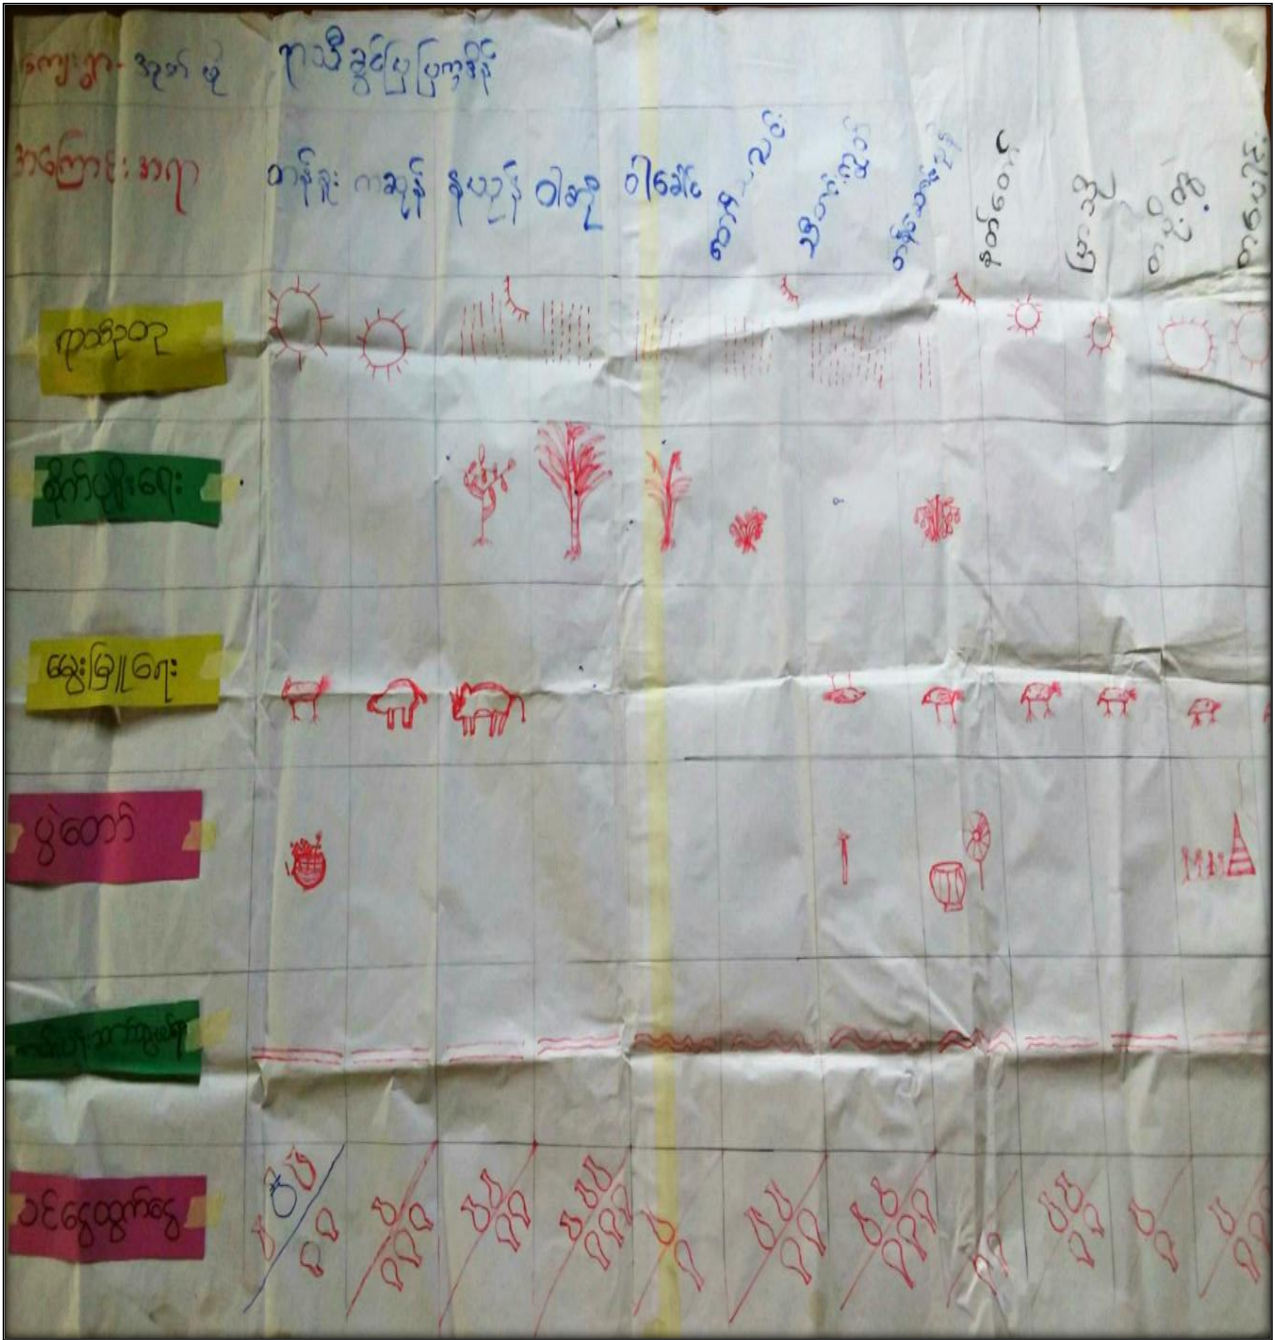 ကျေးရွာ- အုတ်ဖို ရာသီခွင်ပြပြက္ခဒိန်
အကြောင်းအရာ တန်ခူး ကဆုန် နယုန် ဝါဆို ဝါခေါင် တော်သလင်း သီတင်းကျွတ် တန်ဆောင်မုန်း နတ်တော် ပြာသို တပို့တွဲ တပေါင်း
ရာသီဥတု
စိုက်ပျိုးရေး
မွေးမြူရေး
ပွဲတော်
ဝင်ငွေထွက်ငွေ